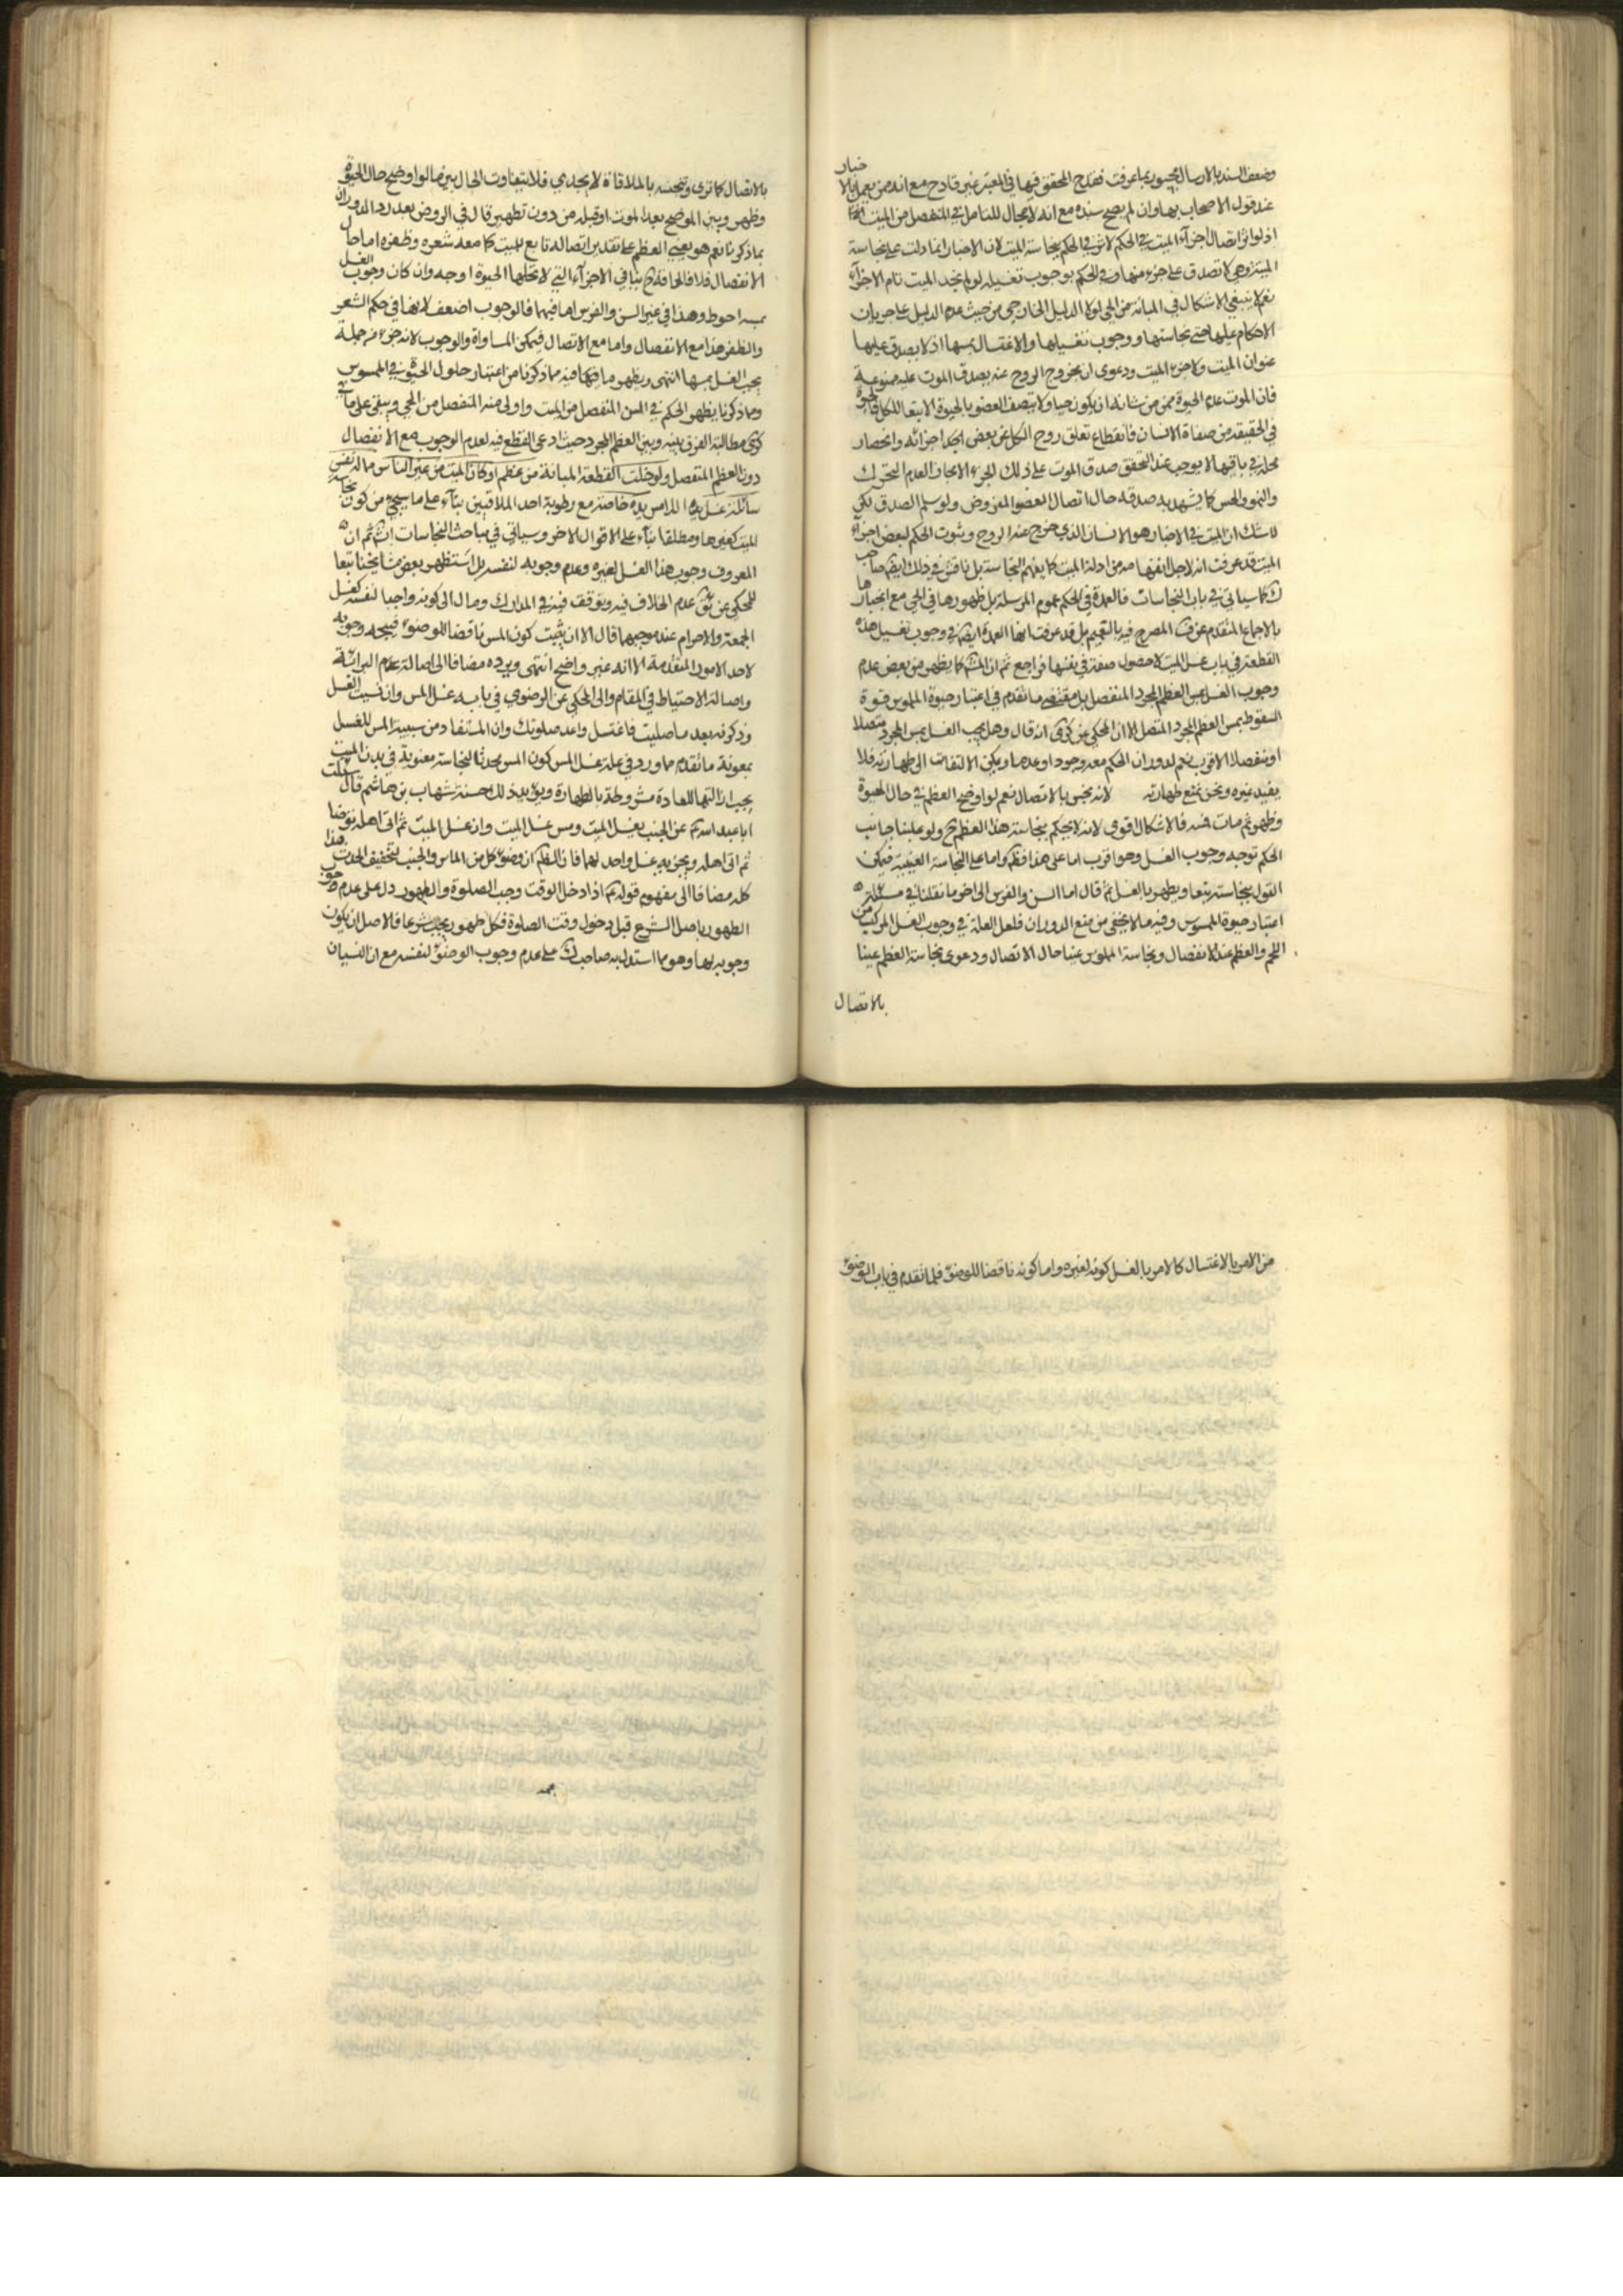 وضعف السند بالارسال مجبور بما عرفت فقدح المحقق فيها في المعتبر غير قادح مع انه ممن يعمل بالاخبار
عند قبول الاصحاب بها وان لم يصح سنده مع انه لا مجال للتامل في المنفصل من الميت
اذ لو اثر اتصال اجزاء الميت في الحكم لاثر في الحكم بنجاسة الميت لان الاخبار انما دلت على نجاسة
الميتة وهي لا تصدق على جزء منها وفي الحكم بوجوب تغسيله لو لم نجد الميت تام الاجزاء
نعم لا ينبغي الاشكال في المبانة من الحي لولا الدليل الخارجي من حيث عدم الدليل على جريان
الاحكام عليها حتى نجاستها ووجوب تغسيلها والاغتسال بمسها اذ لا يصدق عليها
عنوان الميت ولا جزء الميت ودعوى ان بخروج الروح عنه يصدق الموت عليه ممنوعة
فان الموت عدم الحيوة ممن من شانه ان يكون حيا ولا يتصف العضو بالحيوة الا تبعا للكل فالحيوة
في الحقيقة من صفاة الانسان فانقطاع تعلق روح الكل عن بعض اجزائه وانحصار
محله في باقيها لا يوجب عند التحقق صدق الموت على ذلك الجزء الا مجازا لعدم التحرك
والنمو والحس كما يشهد به صدقه حال اتصال العضو المفروض ولو سلم الصدق لكن
لا شك ان الميت في الاخبار هو الانسان الذي خرج عنه الروح وثبوت الحكم لبعض اجزاء
الميت قد عرفت انه لاجل انفهامه من ادلة الميت كما يفهم النجاسة بل ناقش في ذلك ايضا صاحب
ك كما سياتي في باب النجاسات فالعمدة في الحكم عموم المرسلة بل ظهورها في الحي مع انجبارها
بالاجماع المتقدم عن ف المصرح فيه بالتعميم بل قد عرفت انها العمدة ايضا في وجوب تغسيل هذه
القطعة في باب غسل الميت لا حصول صفة في نفسها فراجع ثم ان المش كما يظهر من بعض عدم
وجوب الغسل بمس العظم المجرد المنفصل بل مقتضى ما تقدم في اعتبار حيوة الملموس قوة
السقوط بمس العظم المجرد المتصل الا ان المحكي عن كرى انه قال وهل يجب الغسل بمس المجرد متصلا
او منفصلا الاقرب نعم لدوران الحكم معه وجودا وعدما ويمكن الالتفات الى طهارته فلا
يفيد غيره ونحن نمنع طهارته لانه نجس بالاتصال نعم لو اوضح العظم في حال الحيوة
وطهر ثم مات فمسه فالاشكال اقوى لانه لا يحكم بنجاسة هذا العظم ح ولو غلبنا جانب
الحكم توجه وجوب الغسل وهو اقرب اما على هذا فظ واما على النجاسة العينية فيمكن
القول بنجاسته تبعا ويطهر بالغسل ثم قال اما السن والضرس الى اخر ما نقلنا في مسئلة
اعتبار حيوة الملموس وفيه ما لا يخفى من منع الدوران فلعل العلة في وجوب الغسل المركب من
اللحم والعظم عند الانفصال ونجاسة الملموس عينا حال الاتصال ودعوى نجاسة العظم عينا
بالاتصال
بالاتصال كما ترى وتنجسه بالملاقاة لا يجدي فلا يتفاوت الحال بين ما لو اوضح حال الحيوة
وطهر وبين الموضح بعد الموت او قبله من دون تطهير قال في الروض بعد رد الدوران
بما ذكرنا نعم هو يعني العظم على تقدير اتصاله تابع للميت كما معه شعره وظفره اما حال
الانفصال فلا فالحاقه ح بباقي الاجزاء التي لا تحلها الحيوة اوجه وان كان وجوب الغسل
بمسه احوط وهذا في غير السن والضرس اما فيهما فالوجوب اضعف لانها في حكم الشعر
والظفر هذا مع الانفصال واما مع الاتصال فيمكن المساواة والوجوب لانه جزء من جملة
يجب الغسل بمسها انتهى ويظهر ما فيه مما ذكرنا من اعتبار حلول الحيوة في الملموس
ومما ذكرنا يظهر الحكم في السن المنفصل من الميت واولى منه المنفصل من الحي ويبقى على ما في
كرى مطالبة الفرق بينه وبين العظم المجرد حيث ادعى القطع فيه لعدم الوجوب مع الانفصال
دون العظم المنفصل ولو خلت القطعة المبانة من عظم او كان الميت من غير الناس مما له نفس
سائلة غسل اللامس يده خاصة مع رطوبة احد الملاقيين بناء على ما سيجيء من كون نجاسة
الميت كغيرها ومطلقا بناء على الاقوال الاخر وسياتي في مباحث النجاسات انش ثم ان
المعروف وجوب هذا الغسل لغيره وعدم وجوبه لنفسه بل استظهر بعض مشايخنا تبعا
للمحكي عن ثق عدم الخلاف فيه وتوقف فيه في المدارك ومال الى كونه واجبا لنفسه كغسل
الجمعة والاحرام عند موجبهما قال الا ان يثبت كون المس ناقضا للوضوء فيتجه وجوبه
لاحد الامور المتقدمة الا انه غير واضح انتهى ويرده مضافا الى اصالة عدم البرائة
واصالة الاحتياط في المقام والى المحكي عن الرضوي في باب غسل المس وان نسيت الغسل
وذكرته بعد ما صليت فاغتسل واعد صلوتك وان المستفاد من سببية المس للغسل
بمعونة ما تقدم مما ورد في علة غسل المس كون المس محدثا لنجاسة معنوية في بدن الميت
يجب ازالتها للعبادة مشروطة بالطهارة ويؤيد ذلك حسنة شهاب بن هاشم قال سئلت
ابا عبد الله ع عن الجنب يغسل الميت ومس غسل الميت وان غسل الميت ثم اتى اهله توضا
ثم اتى اهله ويجزيه غسل واحد لهما فان الظ ان وضوء كل من الماس والجنب لتخفيف الحدث هذا
كله مضافا الى مفهوم قوله ع اذا دخل الوقت وجب الصلوة والطهور دل على عدم وجوب
الطهور باصل الشرع قبل دخول وقت الصلوة فكل طهور يجب شرعا فالاصل ان يكون
وجوبه لها وهو مما استدل به صاحب ك على عدم وجوب الوضوء لنفسه مع ان النسيان
من الامر بالاغتسال كالامر بالغسل كونه لغيره واما كونه ناقضا للوضوء فلما تقدم في باب الوضوء